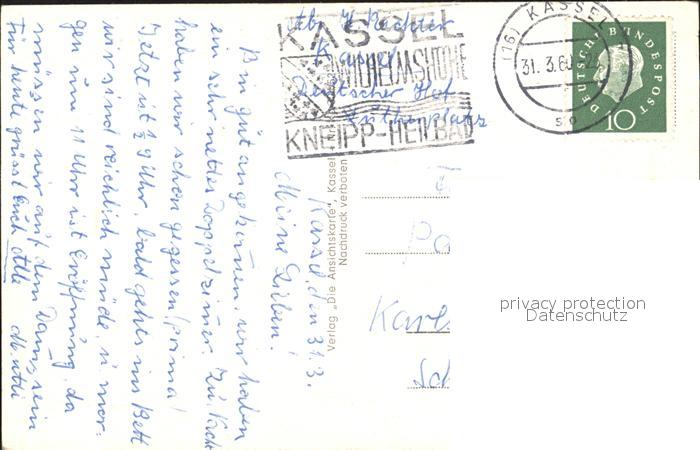 Abs. H. Richter
Kassel
Deutscher Hof
Lutherplatz
KASSEL
WILHELMSHÖHE
KNEIPP-HEILBAD
(16) KASSEL
31. 3. 60
DEUTSCHE BUNDESPOST
10
Kassel, den 31.3.
Meine Lieben!
Bin gut angekommen, wir haben
ein sehr nettes Doppelzimmer. Zu Nacht
haben wir schon gegessen, prima!
Jetzt ist ½ 9 Uhr, bald gehts ins Bett
wir sind reichlich müde, u. mor-
gen um 11 Uhr ist Eröffnung, da
müssen wir auf dem Damm sein
Für heute grüsst Euch Alle Mutti
Verlag „Die Ansichtskarte", Kassel
Nachdruck verboten
Karls
Sch
privacy protection
Datenschutz